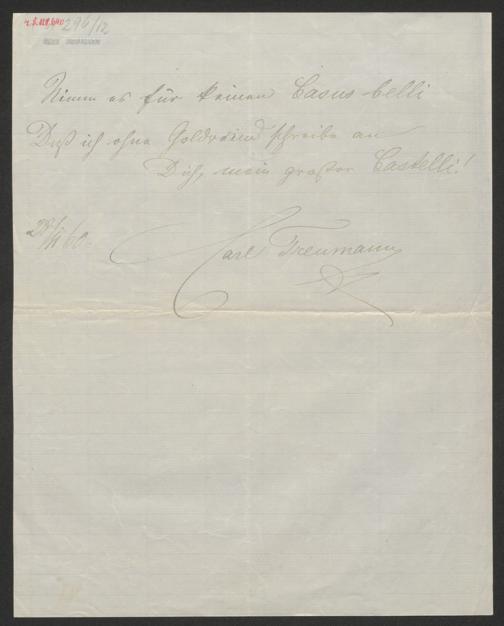 296/12
Nimm es für keinen Casus belli
Daß ich ohne Goldrand schreibe an
Dich, mein großer Castelli!
Carl Treumann